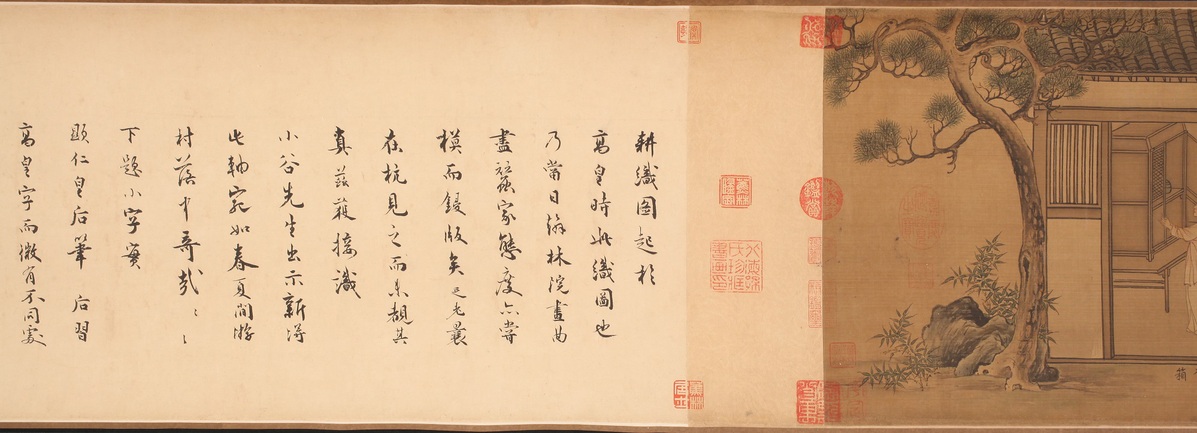 耕織圖起於
高皇時此織圖也
乃當日翰林院畫曲
盡蠶家態度亦嘗
模而鋟版矣己老農
在杭見之而未覩其
真茲獲接識
小谷先生出示新得
此軸宛如春夏間游
村落中奇哉〻〻
下題小字實
顯仁皇后筆后習
高皇字而微有不同處